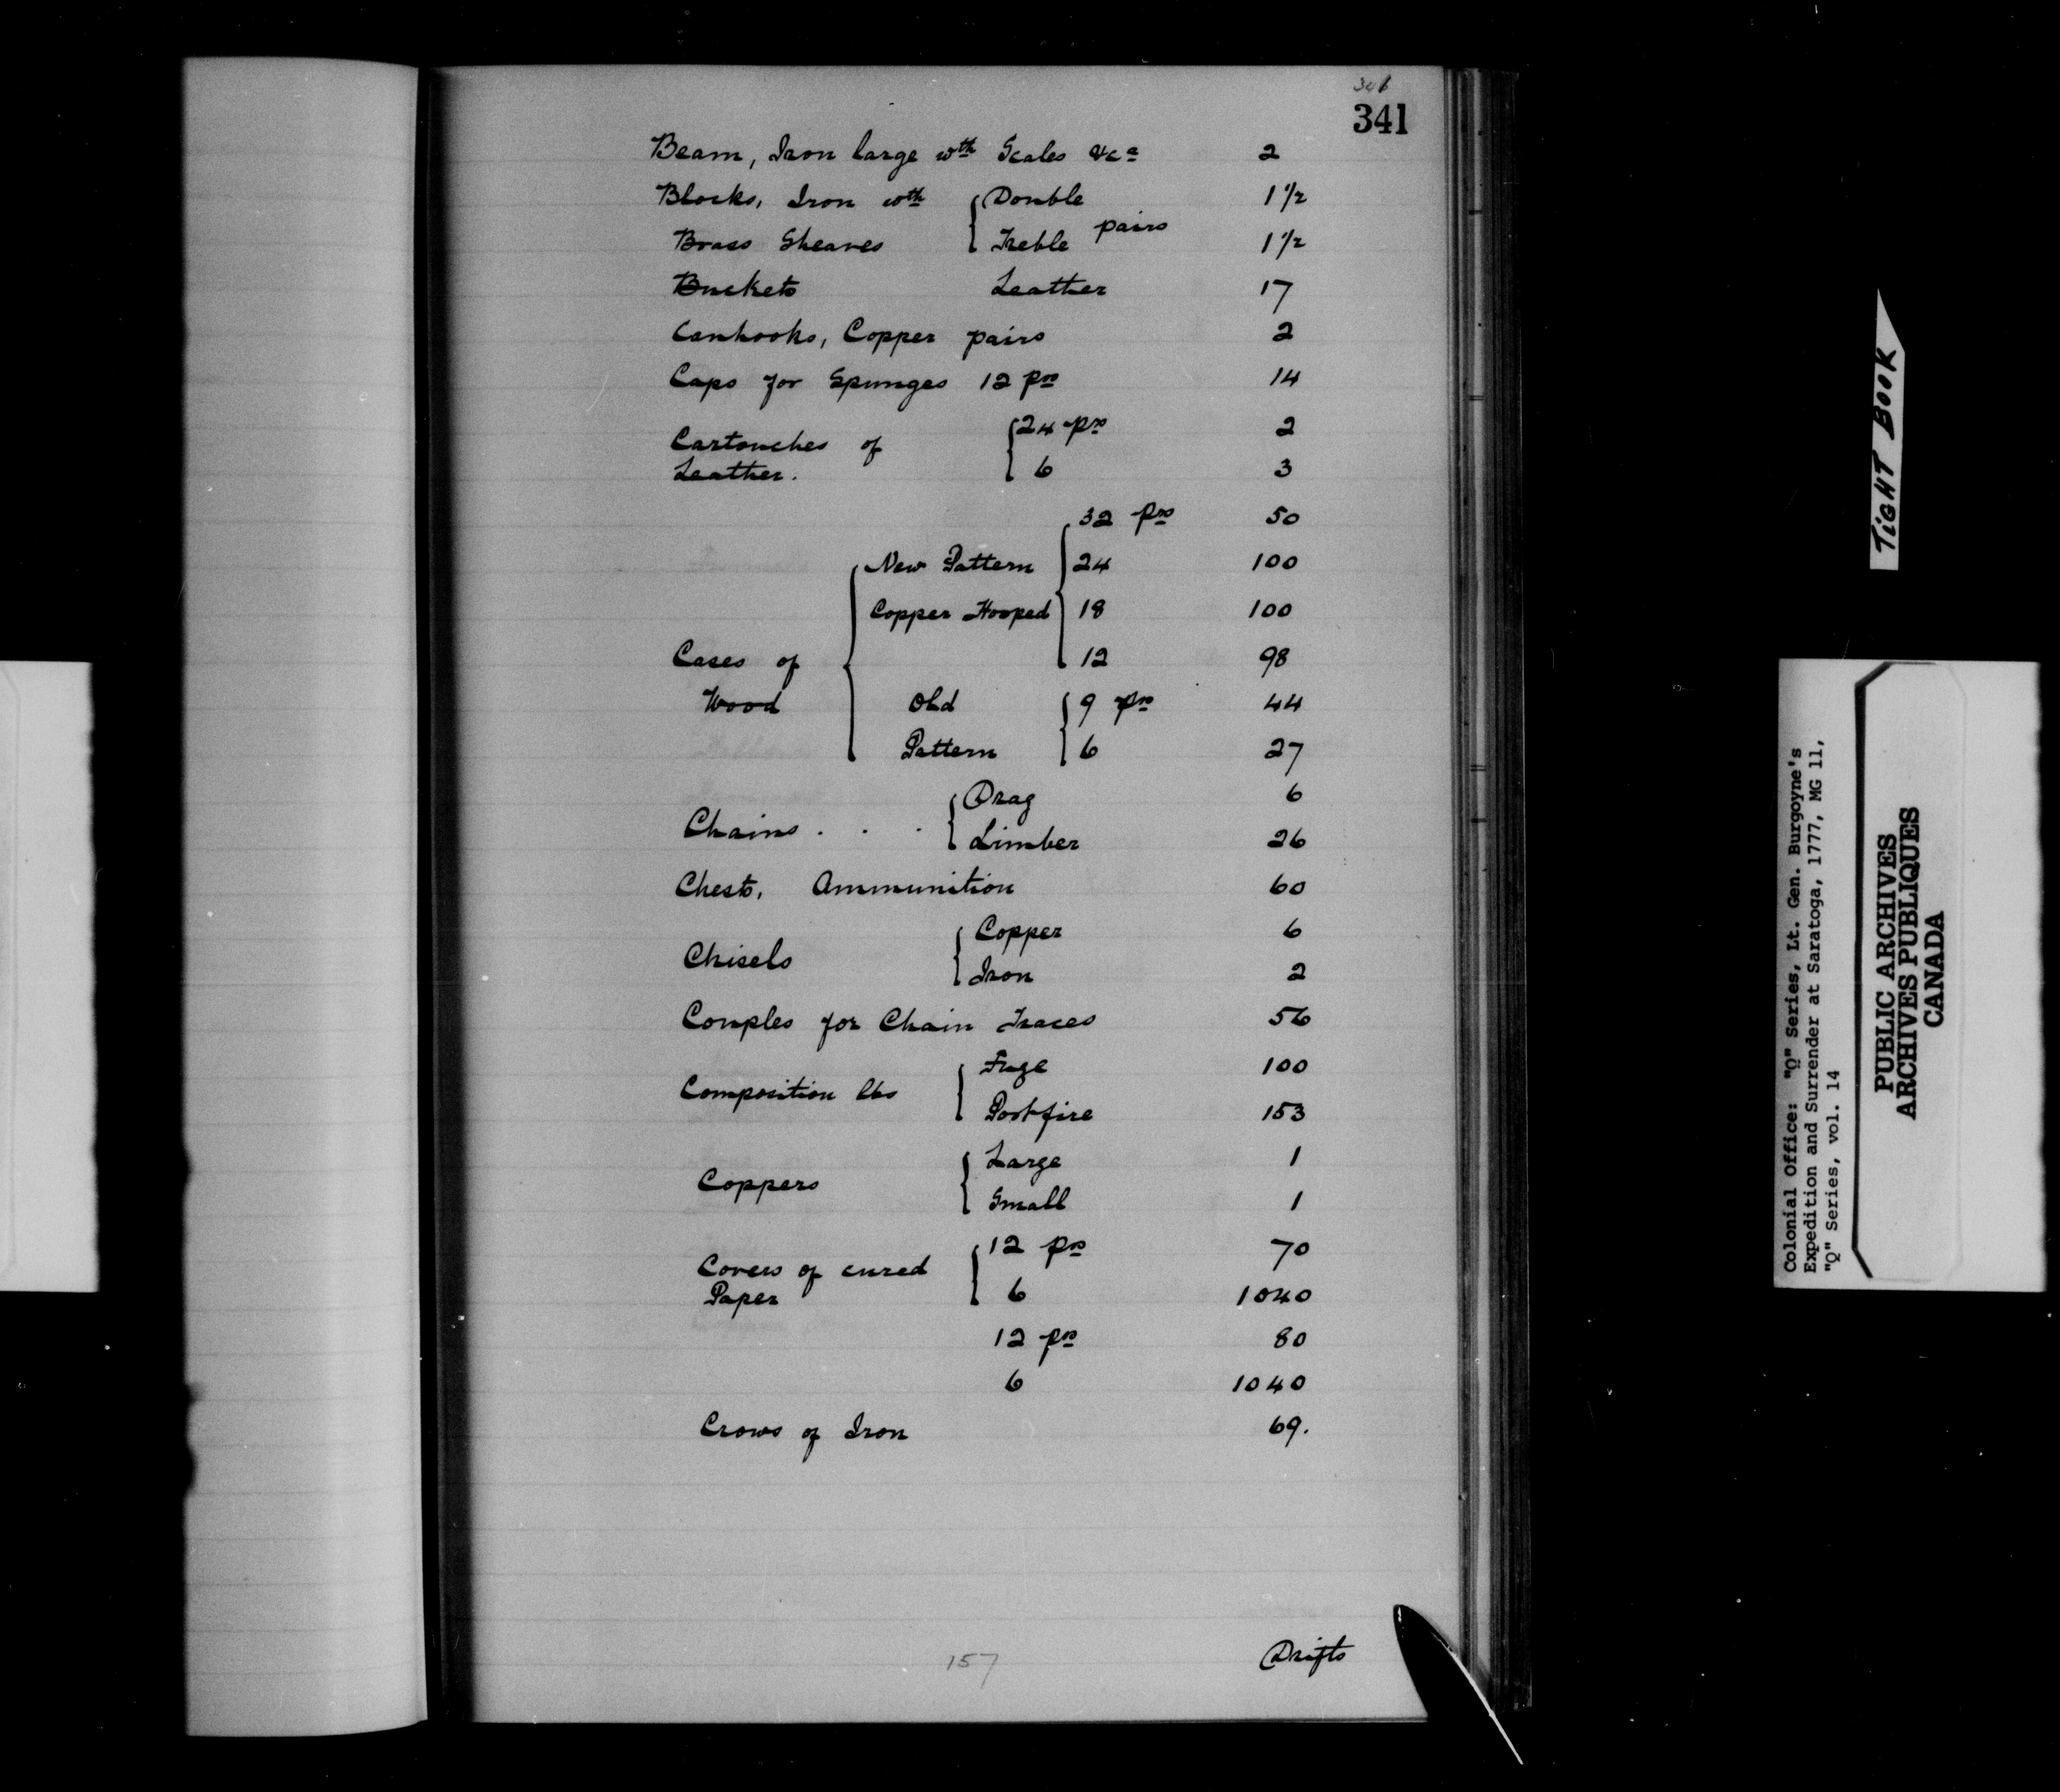 341
341
Beam, Iron large wth Scales &ca 2
Blocks, Iron wth { Double 1 1/2
Brass Sheaves { Treble pairs 1 1/2
Buckets Leather 17
Canhooks, Copper pairs 2
Caps for Spunges 12 prs 14
Cartouches of { 24 prs 2
Leather. { 6 3
32 prs 50
New Pattern 24 100
Copper Hooped 18 100
Cases of 12 98
Wood Old { 9 prs 44
Pattern { 6 27
Chains . . . { Drag 6
{ Limber 26
Chests, Ammunition 60
Chisels { Copper 6
{ Iron 2
Couples for Chain Traces 56
Composition lbs { Fuze 100
{ Portfire 153
Coppers { Large 1
{ Small 1
Covers of cured { 12 prs 70
Paper { 6 1040
12 prs 80
6 1040
Crows of Iron 69.
Drifts
157
TIGHT BOOK
Colonial Office: "Q" Series, Lt. Gen. Burgoyne's
Expedition and Surrender at Saratoga, 1777, MG 11,
"Q" Series, vol. 14
PUBLIC ARCHIVES
ARCHIVES PUBLIQUES
CANADA